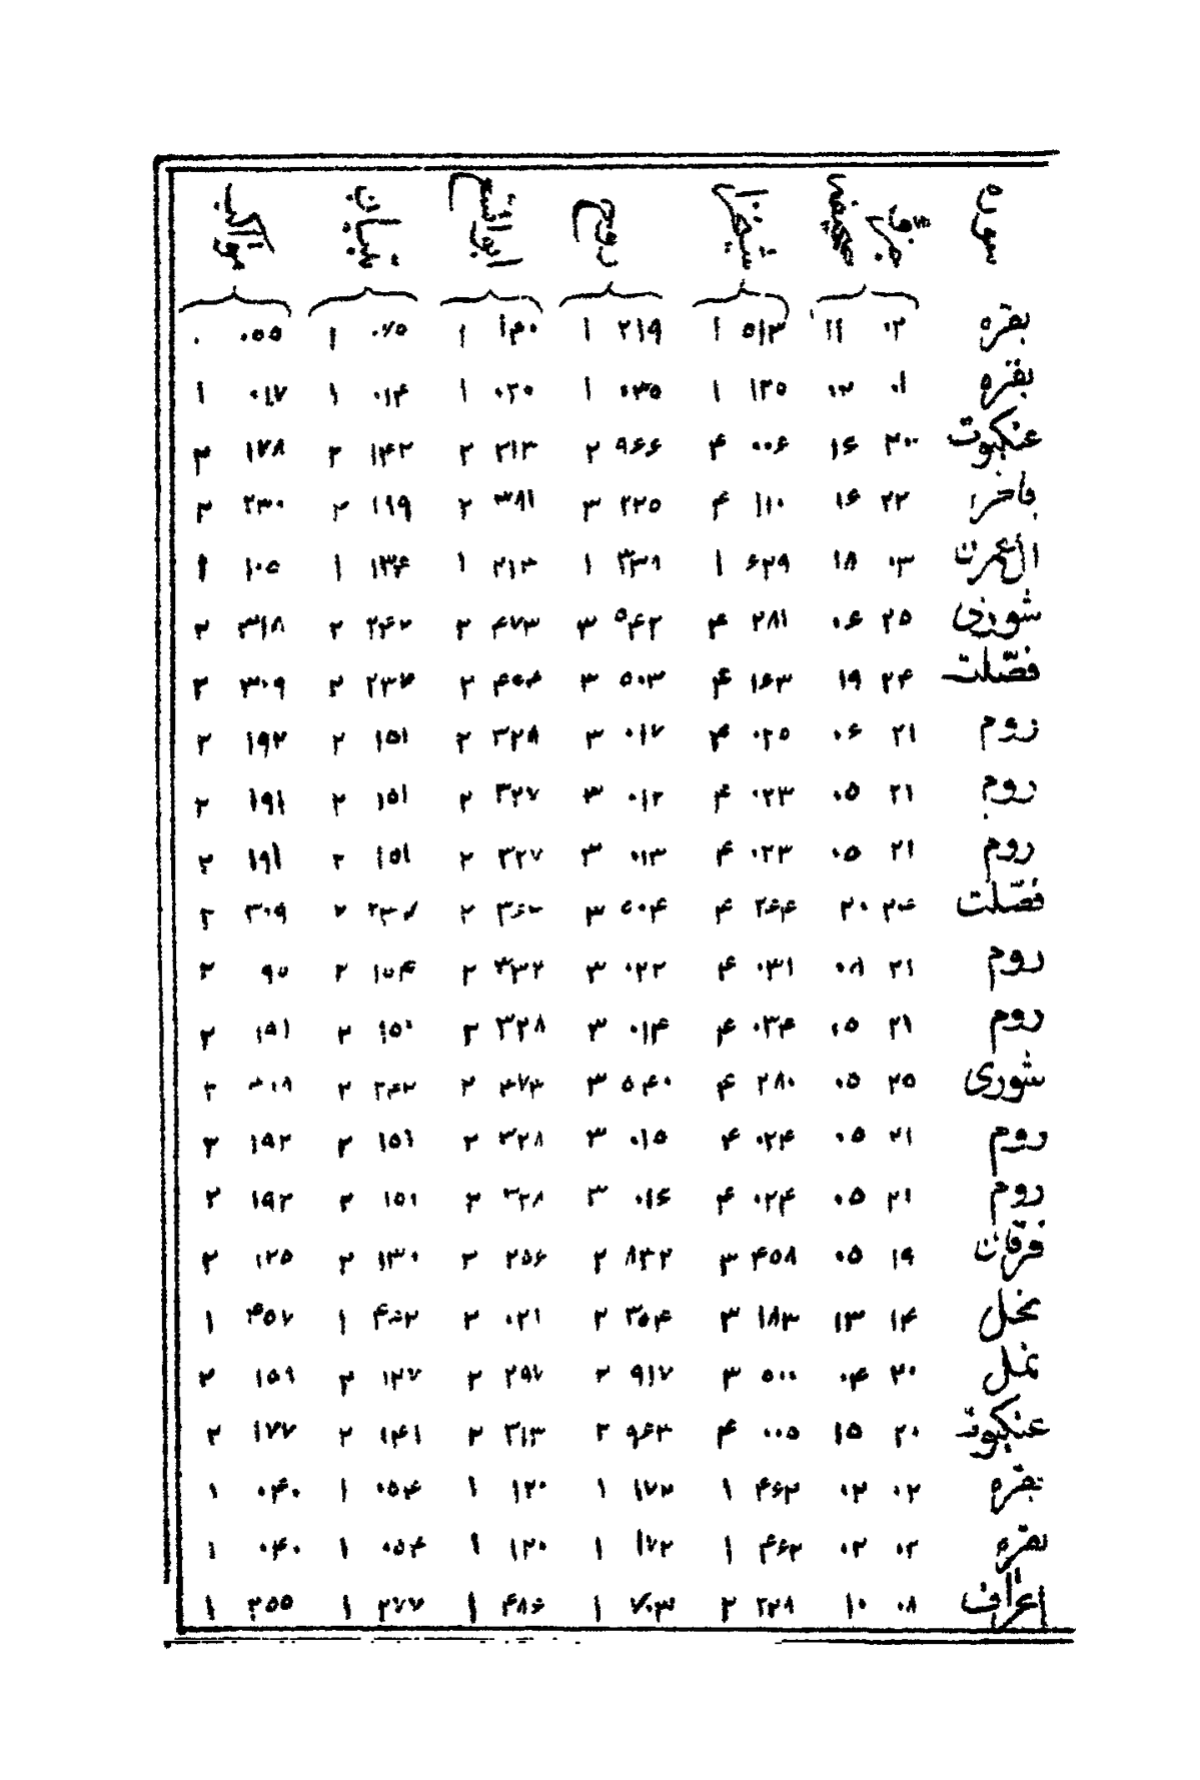 سوره جزء قرآن صحیفه شیخزاده روح ابوالسعود تبیان مواکب
بقره ۰۲ ۱۱ ۵۱۳ ۱ ۲۱۹ ۱ ۱۴۰ ۱ ۰۷۵ ۱ ۰۵۵ ۰
بقره ۰۱ ۰۲ ۱۲۵ ۱ ۰۳۵ ۱ ۰۲۰ ۱ ۰۱۴ ۱ ۰۱۷ ۱
عنکبوت ۲۰ ۱۶ ۰۰۶ ۴ ۹۶۶ ۲ ۳۱۳ ۲ ۱۴۲ ۲ ۱۷۸ ۲
فاطر ۲۲ ۱۶ ۱۱۰ ۴ ۲۲۵ ۳ ۳۸۱ ۲ ۱۹۹ ۲ ۲۳۰ ۲
ال عمرن ۰۳ ۱۸ ۶۲۹ ۱ ۳۳۹ ۱ ۲۱۳ ۱ ۱۳۶ ۱ ۱۰۵ ۱
شوری ۲۵ ۰۶ ۲۸۱ ۴ ۵۴۲ ۳ ۴۷۳ ۲ ۲۴۲ ۲ ۳۱۸ ۲
فصّلت ۲۴ ۱۹ ۱۶۳ ۴ ۵۰۳ ۳ ۲ ۲ ۳۰۹ ۲
روم ۲۱ ۰۶ ۰۲۵ ۴ ۰۱۷ ۳ ۳۲۸ ۲ ۱۵۱ ۲ ۱۹۲ ۲
روم ۲۱ ۰۵ ۰۲۳ ۴ ۰۱۲ ۳ ۳۲۷ ۲ ۱۵۱ ۲ ۱۹۱ ۲
روم ۲۱ ۰۵ ۰۲۳ ۴ ۰۱۳ ۳ ۳۲۷ ۲ ۱۵۱ ۲ ۱۹۱ ۲
فصّلت ۲۴ ۲۰ ۲۶۴ ۴ ۵۰۴ ۳ ۲ ۲ ۳۰۹ ۲
روم ۲۱ ۰۸ ۰۳۱ ۴ ۰۲۲ ۳ ۳۳۲ ۲ ۱۵۴ ۲ ۹۵ ۲
روم ۲۱ ۰۵ ۰۳۴ ۴ ۰۱۴ ۳ ۳۲۸ ۲ ۱۵۰ ۲ ۱۹۱ ۲
شوری ۲۵ ۰۵ ۲۸۰ ۴ ۵۴۰ ۳ ۴۷۳ ۲ ۲۴۲ ۲ ۲
روم ۲۱ ۰۵ ۰۲۴ ۴ ۰۱۵ ۳ ۳۲۸ ۲ ۱۵۱ ۲ ۱۹۲ ۲
روم ۲۱ ۰۵ ۰۲۴ ۴ ۰۱۶ ۳ ۳۲۸ ۲ ۱۵۱ ۲ ۱۹۲ ۲
فرقان ۱۹ ۰۵ ۴۵۸ ۳ ۸۳۲ ۲ ۲۵۶ ۲ ۱۳۰ ۲ ۱۲۵ ۲
نحل ۱۴ ۱۳ ۱۸۳ ۳ ۳۵۴ ۲ ۰۲۱ ۲ ۱ ۴۵۷ ۱
نمل ۲۰ ۰۴ ۵۰۰ ۳ ۹۱۷ ۲ ۲۹۷ ۲ ۱۲۷ ۲ ۱۵۹ ۲
عنکبوت ۲۰ ۱۵ ۰۰۵ ۴ ۹۶۳ ۲ ۳۱۳ ۲ ۱۴۱ ۲ ۱۷۷ ۲
بقره ۰۲ ۰۲ ۴۶۲ ۱ ۱۷۲ ۱ ۱۲۰ ۱ ۰۵۴ ۱ ۰۴۰ ۱
بقره ۰۲ ۰۲ ۴۶۲ ۱ ۱۷۲ ۱ ۱۲۰ ۱ ۰۵۴ ۱ ۰۴۰ ۱
اعراف ۰۸ ۱۰ ۲۲۹ ۲ ۷۰۳ ۱ ۴۸۶ ۱ ۲۷۷ ۱ ۳۵۵ ۱